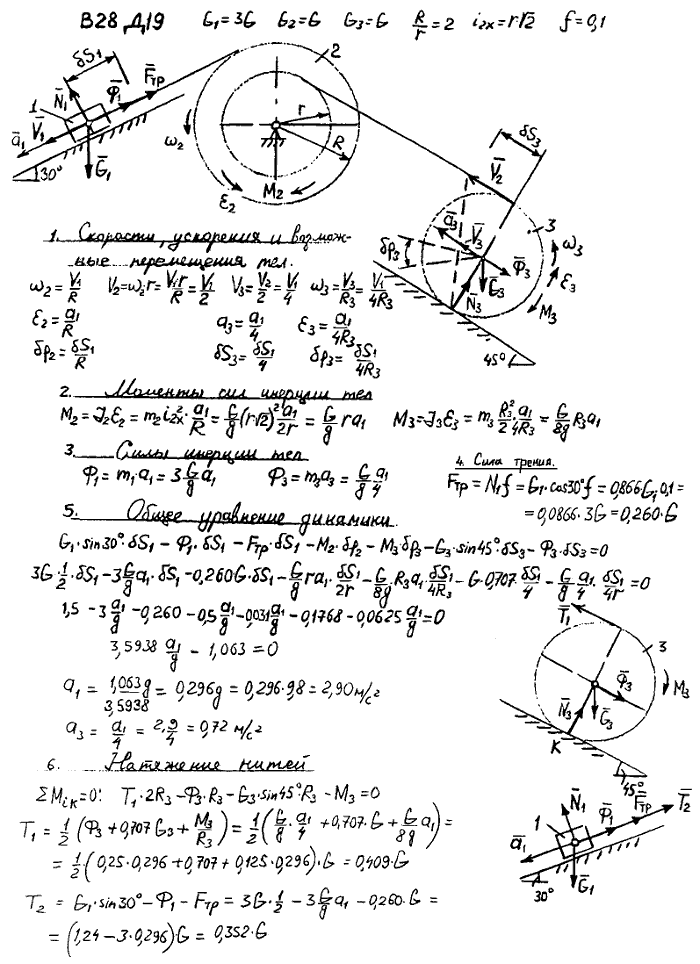 В28 Д19 G₁=3G G₂=G G₃=G R/r=2 i₂ₓ=r√2 f=0,1
δS₁
N̄₁ Φ̄₁ F̄тр
1
ā₁ V̄₁
Ḡ₁
30°
2
r
R
ω₂
M₂
ε₂
δS₃
V̄₂
3
ā₃ V̄₃
δφ₃
Φ̄₃
ω₃
Ḡ₃
ε₃
N̄₃
M₃
45°
1. Скорости, ускорения и возмож-
ные перемещения тел.
ω₂=V₁/R V₂=ω₂·r=V₁·r/R=V₁/2 V₃=V₂/2=V₁/4 ω₃=V₃/R₃=V₁/4R₃
ε₂=a₁/R a₃=a₁/4 ε₃=a₁/4R₃
δφ₂=δS₁/R δS₃=δS₁/4 δφ₃=δS₁/4R₃
2. Моменты сил инерции тел
M₂=J₂ε₂=m₂i₂ₓ²·a₁/R=G/g(r√2)²a₁/2r=G/g ra₁ M₃=J₃ε₃=m₃R₃²/2·a₁/4R₃=G/8g R₃a₁
3. Силы инерции тел
Φ₁=m₁a₁=3G/g a₁ Φ₃=m₃a₃=G/g a₁/4
4. Сила трения.
Fтр=N₁f=G₁·cos30°f=0,866G₁0,1=
=0,0866·3G=0,260·G
5. Общее уравнение динамики
G₁·sin30°·δS₁-Φ₁·δS₁-Fтр·δS₁-M₂·δφ₂-M₃·δφ₃-G₃·sin45°·δS₃-Φ₃·δS₃=0
3G·1/2·δS₁-3G/g a₁·δS₁-0,260G·δS₁-G/g ra₁·δS₁/2r-G/8g·R₃a₁·δS₁/4R₃-G·0,707·δS₁/4-G/g·a₁/4·δS₁/4r=0
1,5-3a₁/g-0,260-0,5a₁/g-0,031a₁/g-0,1768-0,0625a₁/g=0
3,5938 a₁/g-1,063=0
a₁=1,063g/3,5938=0,296g=0,296·9,8=2,90м/с²
a₃=a₁/4=2,9/4=0,72 м/с²
T̄₁
3
Φ̄₃
M₃
N̄₃
Ḡ₃
K
45°
6. Натяжение нитей
ΣMᵢₖ=0: T₁·2R₃-Φ₃·R₃-G₃·sin45°R₃-M₃=0
T₁=1/2(Φ₃+0,707G₃+M₃/R₃)=1/2(G/g·a₁/4+0,707·G+G/8g a₁)=
=1/2(0,25·0,296+0,707+0,125·0,296)·G=0,409·G
T₂=G₁·sin30°-Φ₁-Fтр=3G·1/2-3G/g a₁-0,260·G=
=(1,24-3·0,296)·G=0,352·G
N̄₁ Φ̄₁ F̄тр T̄₂
1
ā₁
Ḡ₁
30°